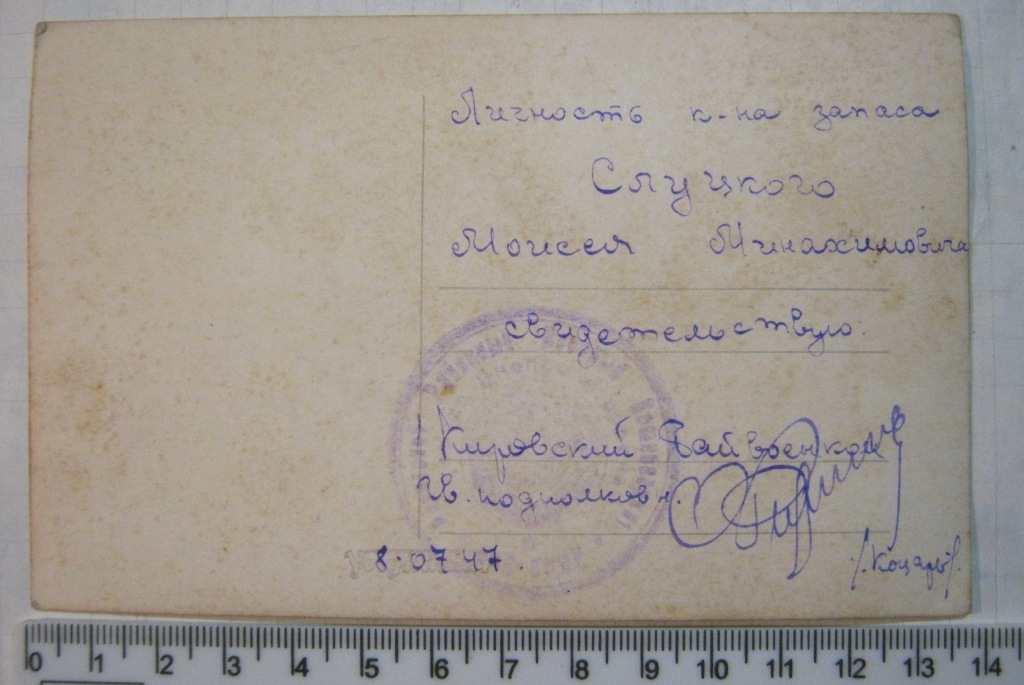 Личность к-на запаса
Слуцкого
Моисея Минахимовича
свидетельствую.
Кировский Райвоенком
Гв. подполковн.
8.07.47.
/Коцарь/.
0 1 2 3 4 5 6 7 8 9 10 11 12 13 14